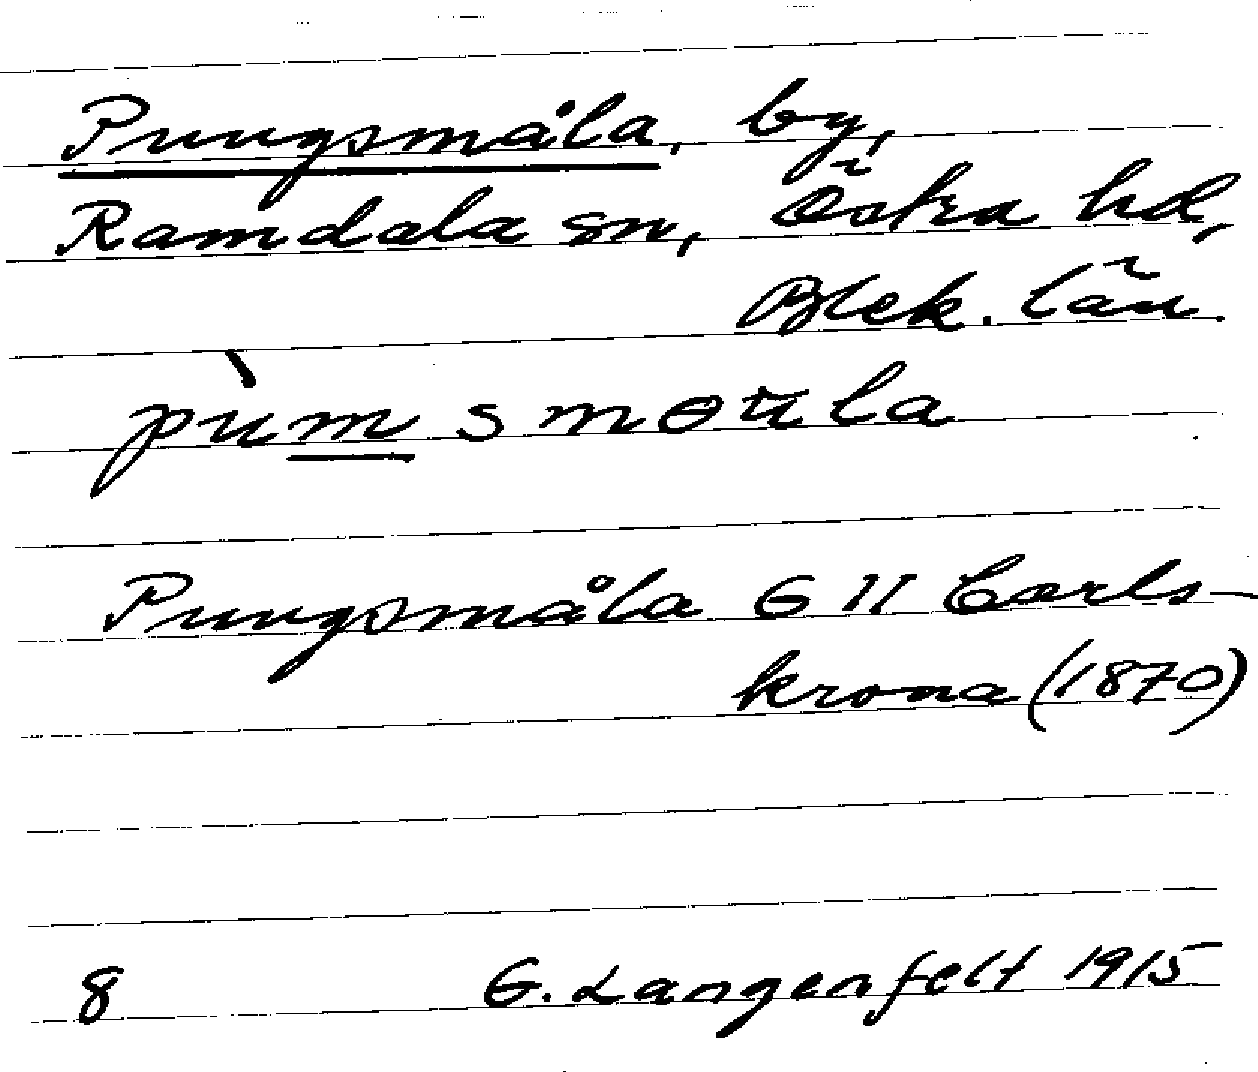 Pungsmåla, by,
Ramdala sn, Östra hd,
Blek. län.
Pungsmåla G II Carls-
krona (1870)
8 G. Langenfelt 1915